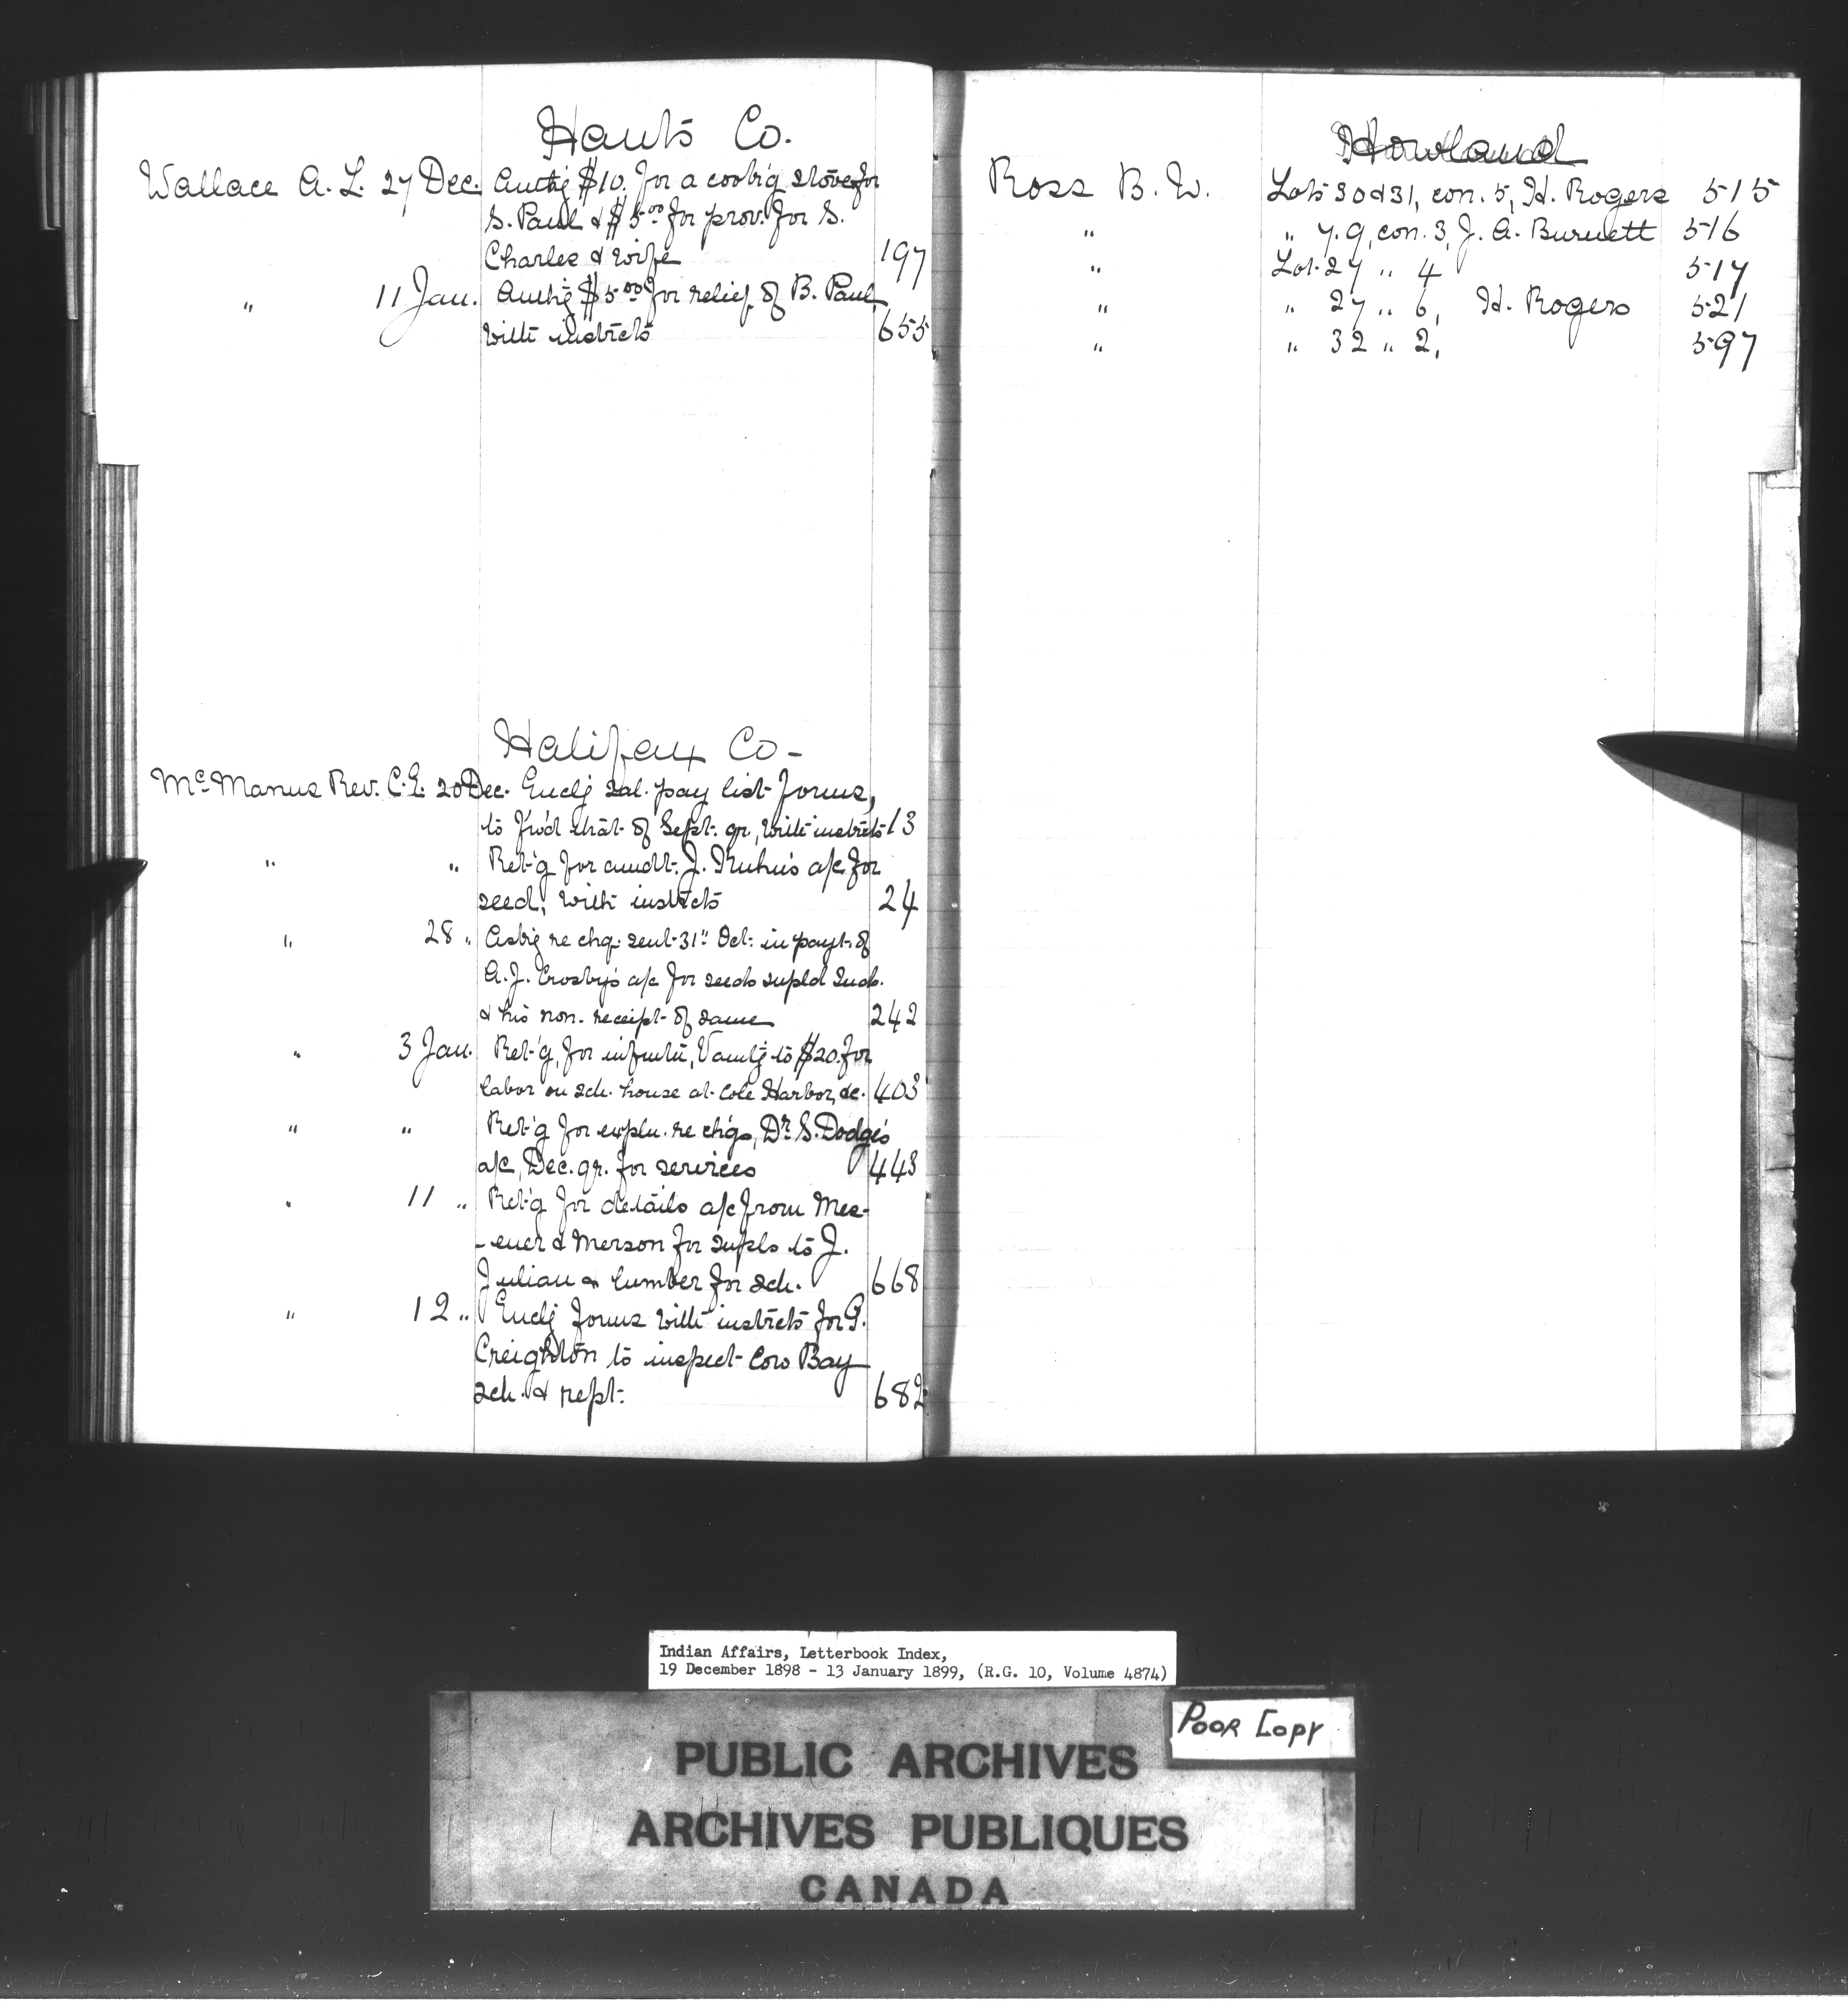 Hants Co.
Wallace A. L. 27 Dec. Authg $10. for a cookg stove for
S. Paul & $5.00 for prov. for S.
Charles & wife 197
" 11 Jan. Authg $5.00 for relief of B. Paul,
with instrcts 655
Halifax Co -
McManus Rev. C. E. 20 Dec. Enclg sal. pay list forms,
to that of Sept. qr., with instrcts 13
" " Ret'g for amdt. J. Kuhn's a/c for
seed, with instrcts 24
" 28 " Askg re chq. sent 31" Oct. in payt. of
A. J. Crosby's a/c for seeds supld Inds.
& his non-receipt of same 242
" 3 Jan. Ret'g, for to $20. for
labor on sch. house at Cole Harbor, &c. 403
" " Ret'g for expln. re chgs, Dr. S. Dodge's
a/c, Dec. qr. for services 443
" 11 " Ret'g for details a/c from Mes-
-ener & Merson for supls to J.
Julian & lumber for sch. 668
" 12 " Enclg forms with instrcts for G.
Creighton to inspect Cow Bay
sch. & rept. 682
Howland
Ross B. W. Lots 30 & 31, con. 5, H. Rogers 515
" " 7. 9, con. 3, J. A. Burnett 516
" Lot 27 " 4 517
" " 27 " 6, H. Rogers 521
" " 32 " 2, 597
Indian Affairs, Letterbook Index,
19 December 1898 - 13 January 1899, (R.G. 10, Volume 4874)
POOR COPY
PUBLIC ARCHIVES
ARCHIVES PUBLIQUES
CANADA